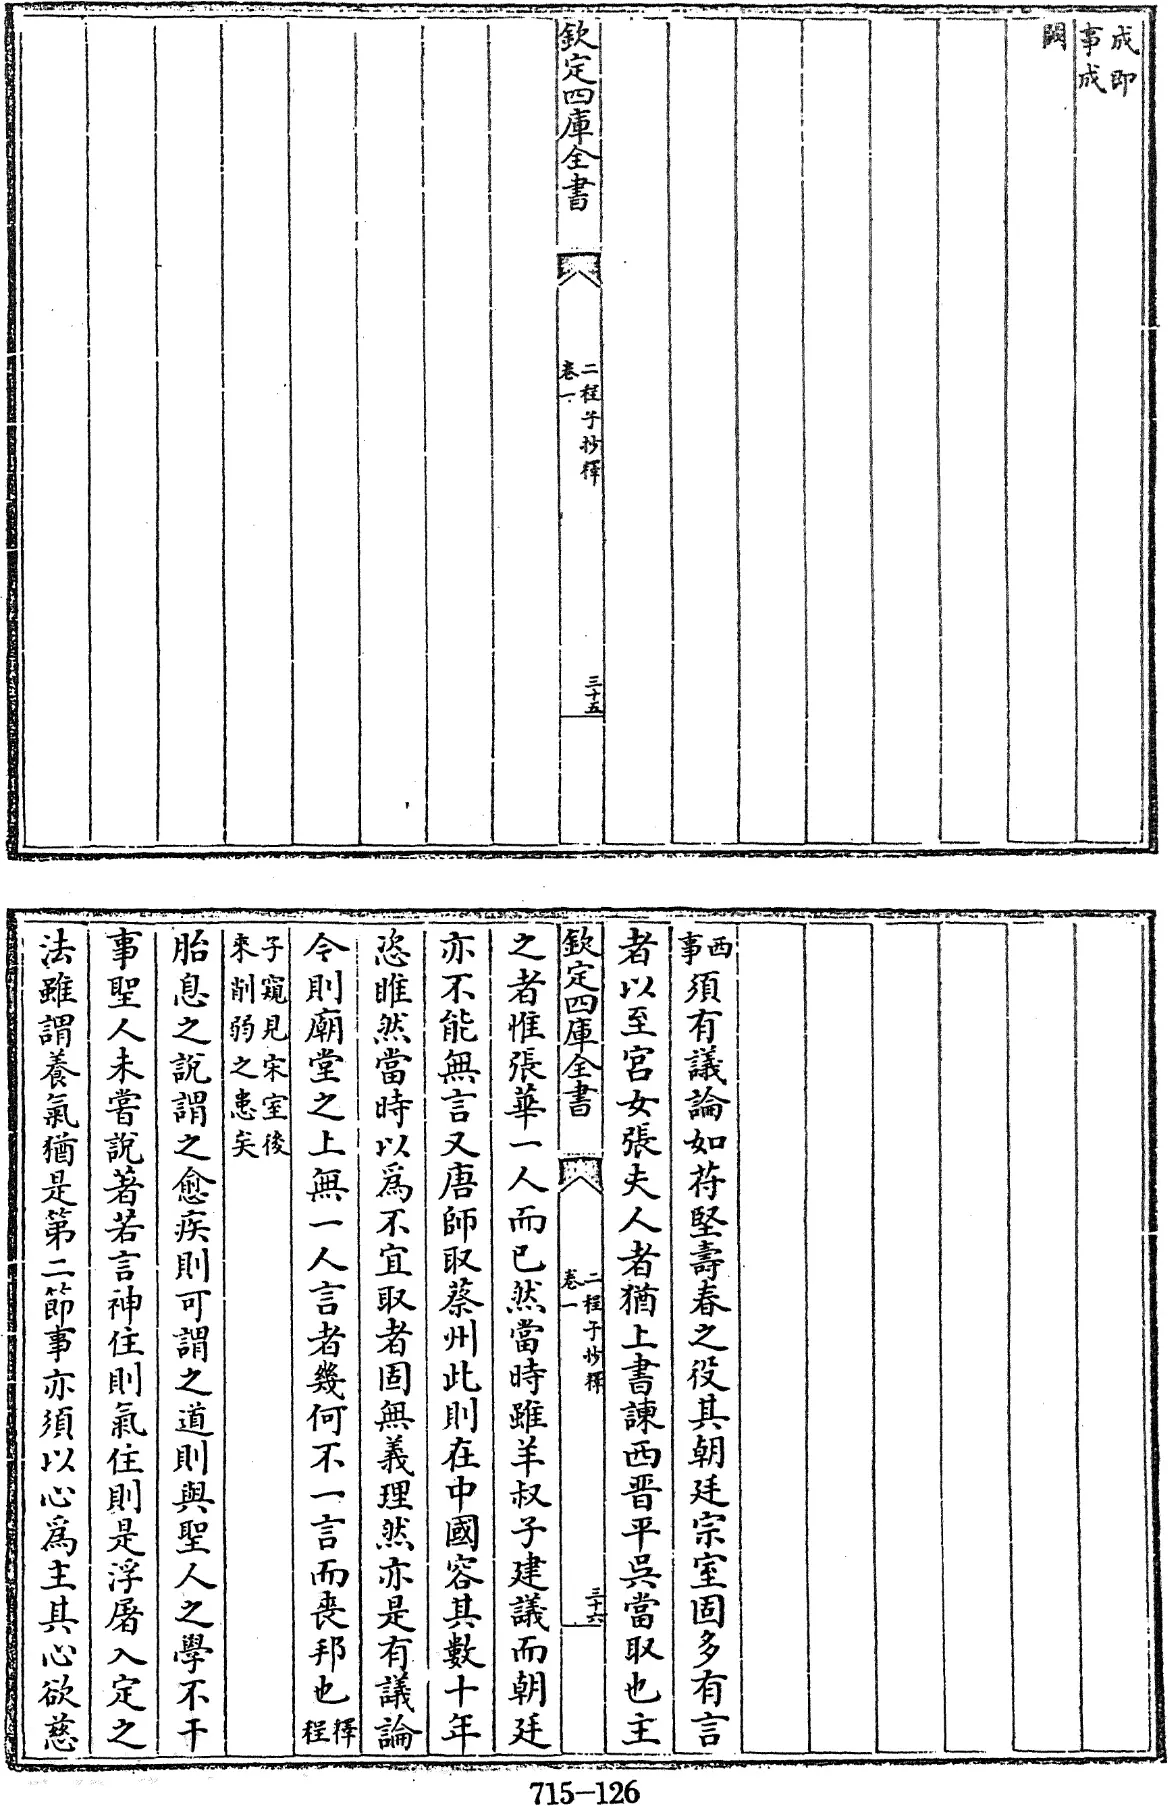 成即
事成
闕
欽定四庫全書
二程子抄釋
卷一
三十五
西
事
須有議論如苻堅壽春之役其朝廷宗室固多有言
者以至宮女張夫人者猶上書諫西晉平吳當取也主
欽定四庫全書
二程子抄釋
卷一
三十六
之者惟張華一人而已然當時雖羊叔子建議而朝廷
亦不能無言又唐師取蔡州此則在中國容其數十年
恣睢然當時以爲不宜取者固無義理然亦是有議論
今則廟堂之上無一人言者幾何不一言而喪邦也
釋
程
子窺見宋室後
來削弱之患矣
胎息之說謂之愈疾則可謂之道則與聖人之學不干
事聖人未嘗說著若言神住則氣住則是浮屠入定之
法雖謂養氣猶是第二節事亦須以心爲主其心欲慈
715-126